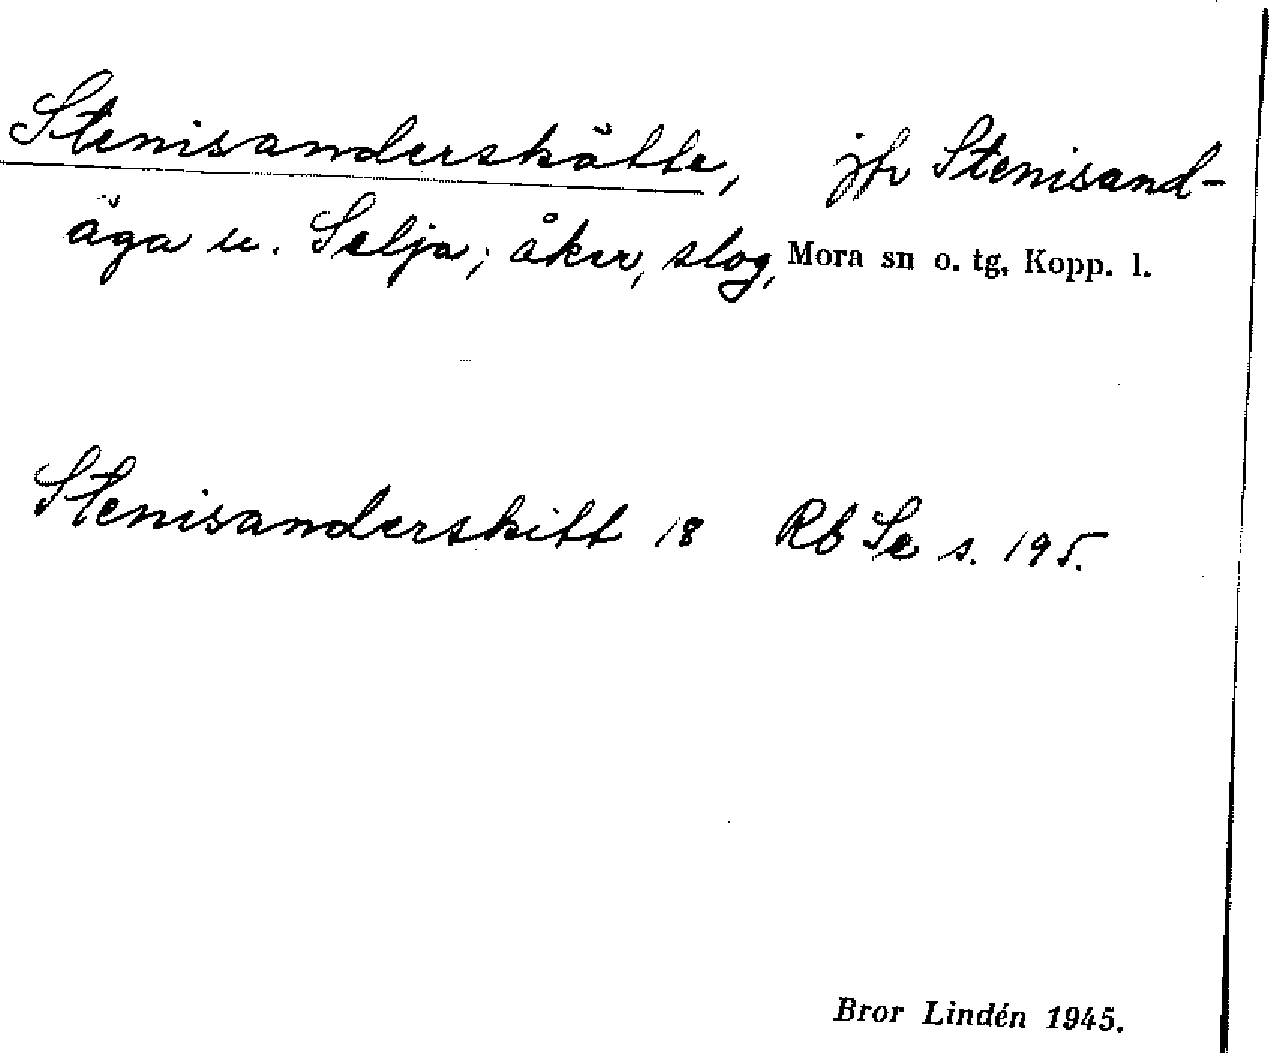 Stenisanderskätte, jfr Stenisand-
äga u. Selja; åker, slog, Mora sn o. tg. Kopp. l.
Stenisanderskitt 18 Rb Se s. 195.
Bror Lindén 1945.